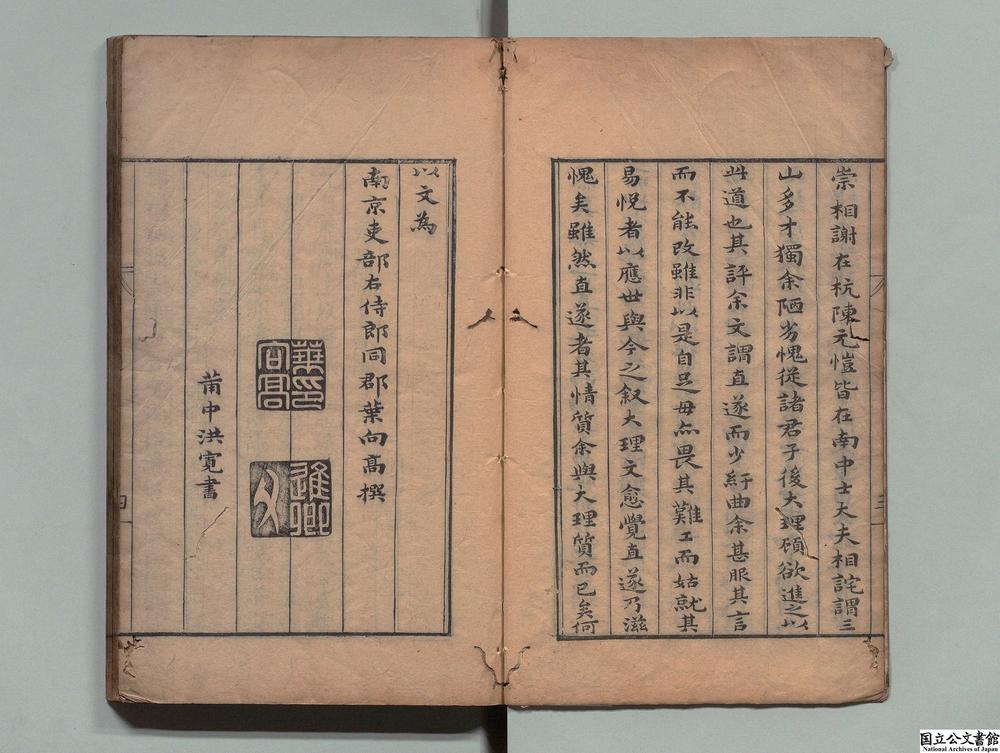 崇相謝在杭陳元愷皆在南中士大夫相詫謂三
山多才獨余陋劣愧從諸君子後大理顧欲進之以
此道也其評余文謂直遂而少紆曲余甚服其言
而不能改雖非以是自足毋亦畏其難工而姑就其
易悅者以應世與今之叙大理文愈覺直遂乃滋
愧矣雖然直遂者其情質余與大理質而已矣何
以文為
南京吏部右侍郎同郡葉向高撰
葉印向高
進卿父
莆中洪寬書
三
四
国立公文書館
National Archives of Japan